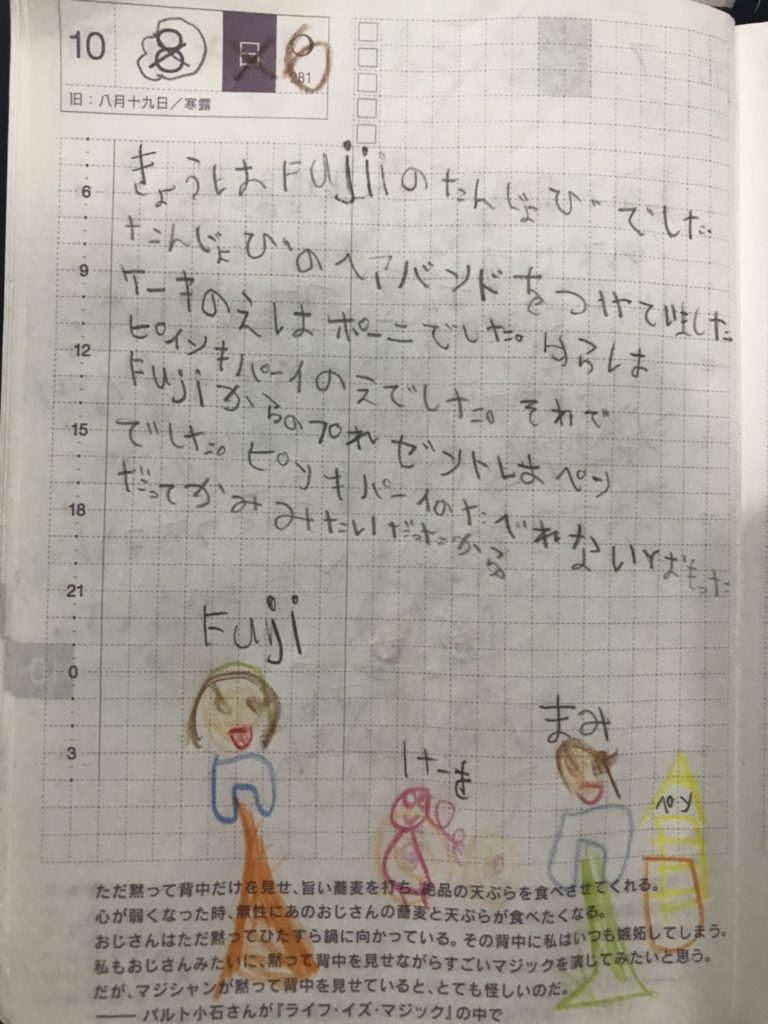 10 8 日 6
281
旧：八月十九日／寒露
きょうは Fujiiのたんじょび でした
たんじょびのヘアバンドをつけていました
ケーキのえはポーニでした。からは
ピインキパーイのえでした。それで
Fujiからのプれゼントはペン
でした。ピンキパーイのたべれないとおもった
だってかみみたいだったから
6
9
12
15
18
21
0
3
Fuji
まみ
けーき
ペン
ただ黙って背中だけを見せ、旨い蕎麦を打ち、絶品の天ぷらを食べさせてくれる。
心が弱くなった時、無性にあのおじさんの蕎麦と天ぷらが食べたくなる。
おじさんはただ黙ってひたすら鍋に向かっている。その背中に私はいつも嫉妬してしまう。
私もおじさんみたいに、黙って背中を見せながらすごいマジックを演じてみたいと思う。
だが、マジシャンが黙って背中を見せていると、とても怪しいのだ。
—— パルト小石さんが『ライフ・イズ・マジック』の中で